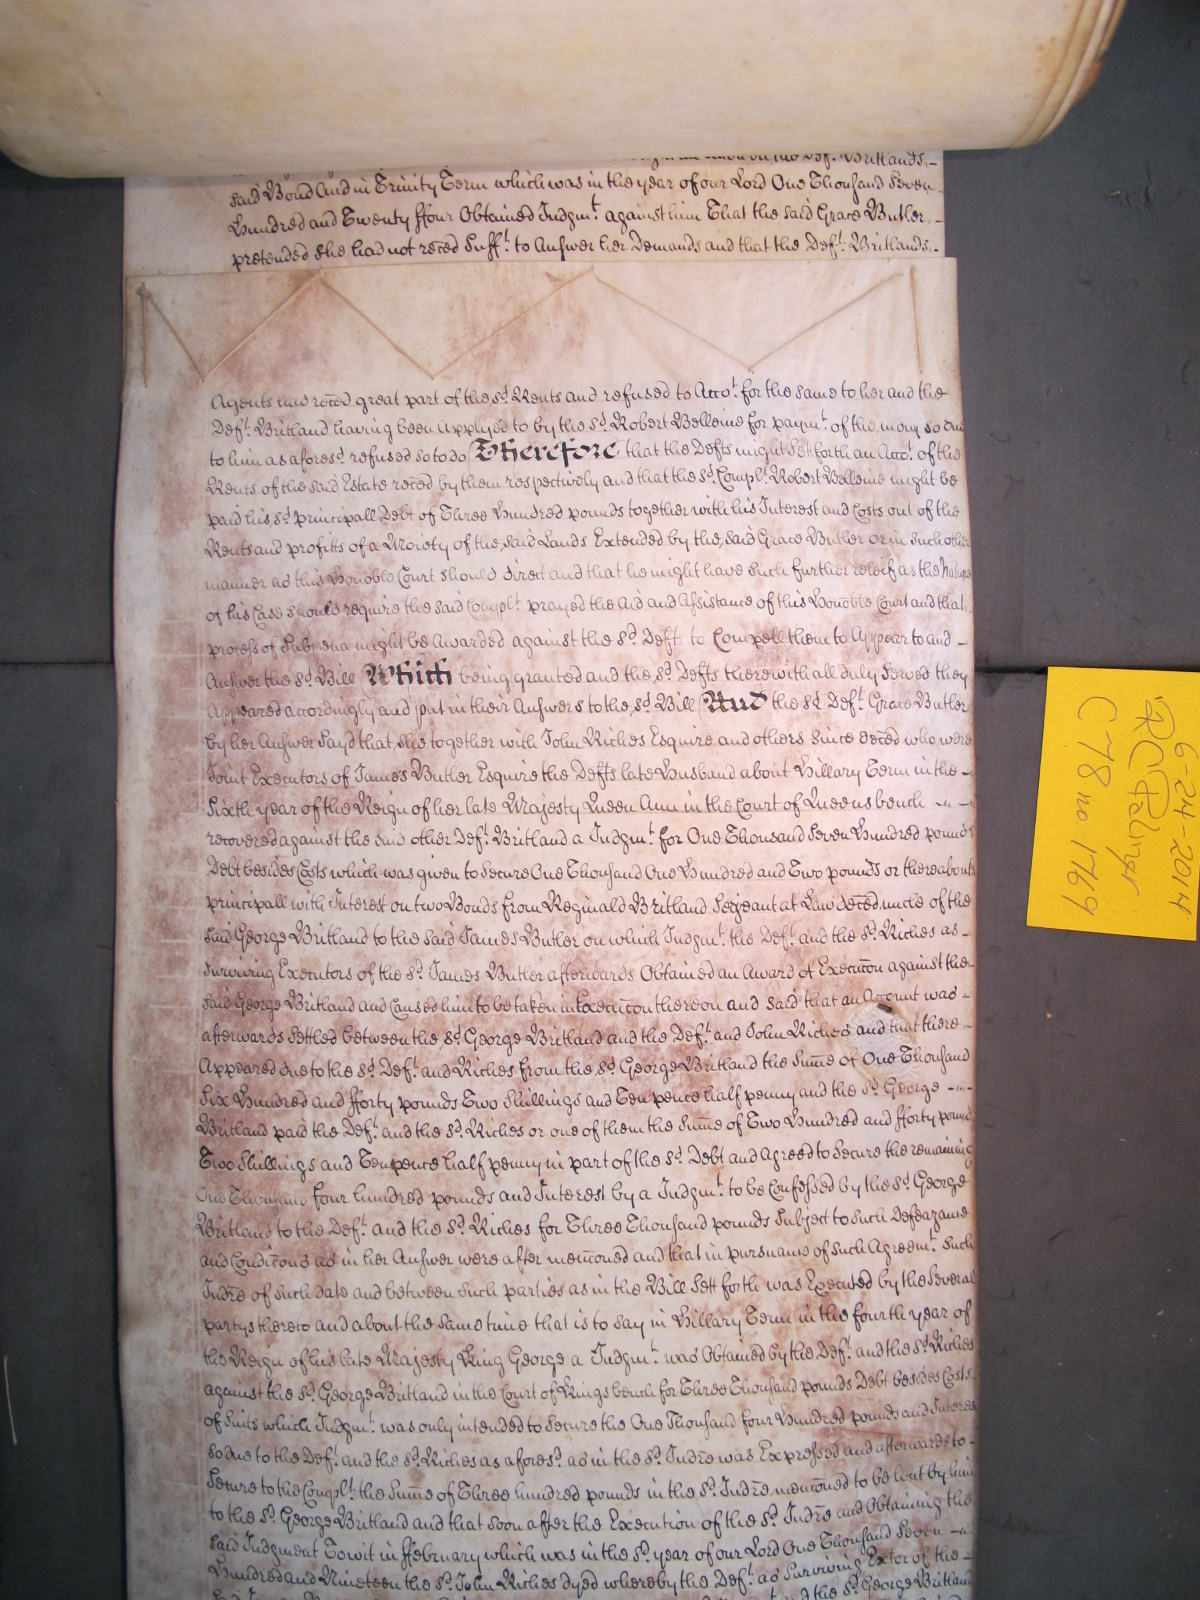 Def.t Britlands
said Bond And in Trinity Term which was in the year of our Lord One Thousand Seven
Hundred and Twenty ffour Obtained Judgm.t against him That the said Grace Butler
pretended she had not reced suff.t to Answer her Demands and that the Def.t Britlands
Agents had reced great part of the s.d Rents and refused to Acco.t for the same to her and the
Def.t Britland having been Applyed to by the s.d Robert Belleine for paym.t of the mony so due
to him as afores.d refused so to do Therefore that the Defts might Set forth an Acco.t of the
Rents of the said Estate reced by them respectively and that the s.d Compl.t Robert Belleine might be
paid his s.d principall Debt of Three Hundred pounds together with his Interest and Costs out of the
Rents and profitts of a Moiety of the said Lands Extended by the said Grace Butler or in such other
manner as this Honoble Court should direct and that he might have such further releif as the Nature
of his Case should require the said Compl.t prayed the Aid and Assistance of this Honoble Court and that
process of Subpena might be Awarded against the s.d Deft to Compell them to Appear to and
Answer the s.d Bill Which being granted and the s.d Defts therewith all duly Served they
Appeared accordingly and put in their Answers to the s.d Bill And the sd Def.t Grace Butler
by her Answer Sayd that she together with John Riches Esquire and others Since deced who were
Joint Executors of James Butler Esquire the Defts late Husband about Hillary Term in the
Sixth year of the Reign of her late Majesty Queen Ann in the Court of Queens bench
recovered against the said other Def.t Britland a Judgm.t for One Thousand Seven Hundred pounds
Debt besides Costs which was given to Secure One Thousand One Hundred and Two pounds or thereabouts
principall with Interest on two Bonds from Reginald Britland Serjeant at Law deced uncle of the
said George Britland to the said James Butler on which Judgm.t the Def.t and the s.d Riches as
Surviving Executors of the s.d James Butler afterwards Obtained an Award of Execucon against the
said George Britland and Caused him to be taken in Execucon thereon and said that an Account was
afterwards Settled between the s.d George Britland and the Def.t and John Riches and that there
Appeared due to the s.d Def.t and Riches from the s.d George Britland the Sume of One Thousand
Six Hundred and fforty pounds Two Shillings and Tenpence half penny and the s.d George
Britland paid the Def.t and the s.d Riches or one of them the Sume of Two Hundred and fforty pounds
Two Shillings and Tenpence half penny in part of the s.d Debt and Agreed to Secure the remaining
One Thousand four hundred pounds and Interest by a Judgm.t to be Confessed by the s.d George
Britland to the Def.t and the s.d Riches for Three Thousand pounds Subject to Such Defeazance
and Condicons as in her Answer were after menconed and that in pursuance of Such Agreem.t Such
Indre of Such date and between Such parties as in the Bill Sett forth was Executed by the Several
partys thereto and about the same time that is to say in Hillary Term in the fourth year of
the Reign of his late Majesty King George a Judgm.t was Obtained by the Def.t and the s.d Riches
against the s.d George Britland in the Court of Kings bench for Three Thousand pounds Debt besides Costs
of Suits which Judgm.t was only intended to Secure the One Thousand four Hundred pounds and Interest
so due to the Def.t and the s.d Riches as afores.d as in the s.d Indre was Expressed and afterwards to
Secure to the Compl.t the Sume of Three hundred pounds in the s.d Indre menconed to be lent by him
to the s.d George Britland and that soon after the Execution of the s.d Indre and Obtaining the
said Judgment To wit in ffebruary which was in the s.d year of our Lord One Thousand Seven
Hundred and Nineteen the s.d John Riches dyed whereby the Def.t as Surviving Extor of the
and the s.d George Britland
6-24-2014
C 78 no 1769